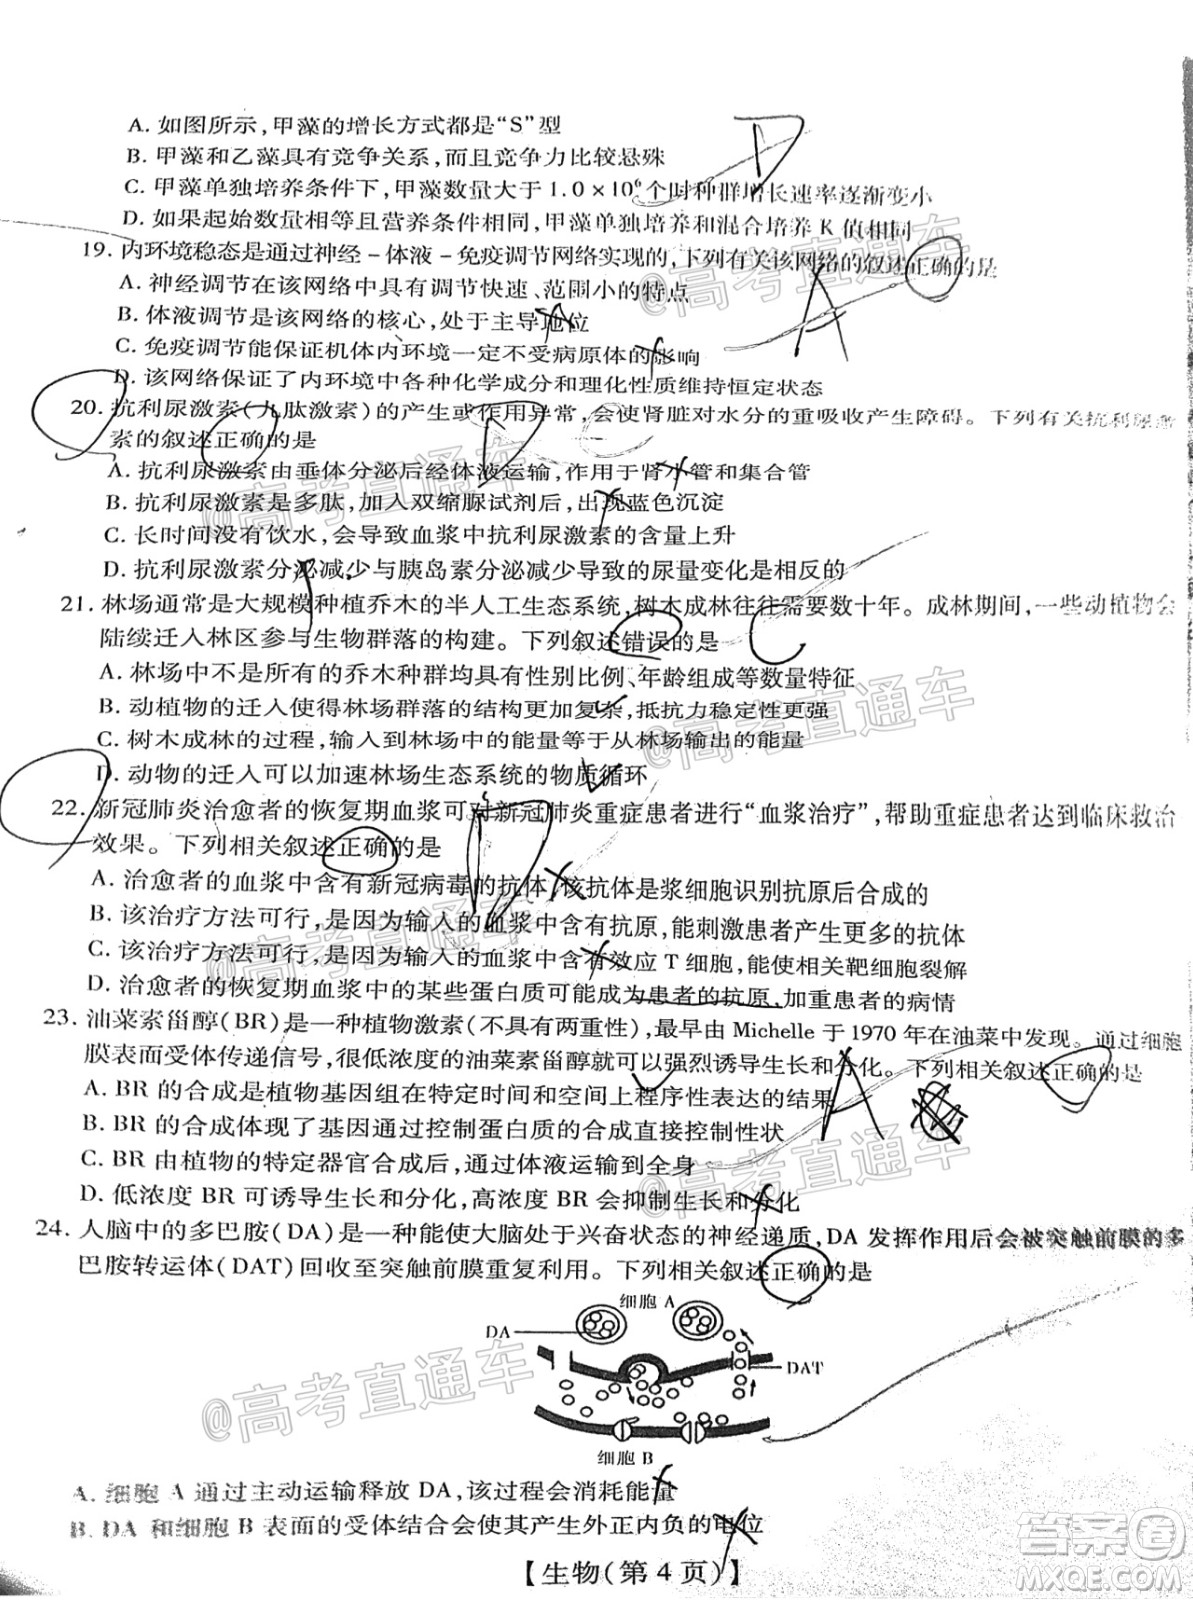 A. 如图所示,甲藻的增长方式都是“S”型
B. 甲藻和乙藻具有竞争关系,而且竞争力比较悬殊
C. 甲藻单独培养条件下,甲藻数量大于1.0×10⁶个时种群增长速率逐渐变小
D. 如果起始数量相等且营养条件相同,甲藻单独培养和混合培养 K 值相同
D
19. 内环境稳态是通过神经-体液-免疫调节网络实现的,下列有关该网络的叙述正确的是
A. 神经调节在该网络中具有调节快速、范围小的特点
B. 体液调节是该网络的核心,处于主导地位
C. 免疫调节能保证机体内环境一定不受病原体的影响
D. 该网络保证了内环境中各种化学成分和理化性质维持恒定状态
A
20. 抗利尿激素(九肽激素)的产生或作用异常,会使肾脏对水分的重吸收产生障碍。下列有关抗利尿激
素的叙述正确的是
A. 抗利尿激素由垂体分泌后经体液运输,作用于肾小管和集合管
B. 抗利尿激素是多肽,加入双缩脲试剂后,出现蓝色沉淀
C. 长时间没有饮水,会导致血浆中抗利尿激素的含量上升
D. 抗利尿激素分泌减少与胰岛素分泌减少导致的尿量变化是相反的
21. 林场通常是大规模种植乔木的半人工生态系统,树木成林往往需要数十年。成林期间,一些动植物会
陆续迁入林区参与生物群落的构建。下列叙述错误的是
C
A. 林场中不是所有的乔木种群均具有性别比例、年龄组成等数量特征
B. 动植物的迁入使得林场群落的结构更加复杂,抵抗力稳定性更强
C. 树木成林的过程,输入到林场中的能量等于从林场输出的能量
D. 动物的迁入可以加速林场生态系统的物质循环
22. 新冠肺炎治愈者的恢复期血浆可对新冠肺炎重症患者进行“血浆治疗”,帮助重症患者达到临床救治
效果。下列相关叙述正确的是
A. 治愈者的血浆中含有新冠病毒的抗体,该抗体是浆细胞识别抗原后合成的
B. 该治疗方法可行,是因为输入的血浆中含有抗原,能刺激患者产生更多的抗体
C. 该治疗方法可行,是因为输入的血浆中含有效应 T 细胞,能使相关靶细胞裂解
D. 治愈者的恢复期血浆中的某些蛋白质可能成为患者的抗原,加重患者的病情
23. 油菜素甾醇(BR)是一种植物激素(不具有两重性),最早由 Michelle 于 1970 年在油菜中发现。通过细胞
膜表面受体传递信号,很低浓度的油菜素甾醇就可以强烈诱导生长和分化。下列相关叙述正确的是
A. BR 的合成是植物基因组在特定时间和空间上程序性表达的结果
B. BR 的合成体现了基因通过控制蛋白质的合成直接控制性状
C. BR 由植物的特定器官合成后,通过体液运输到全身
D. 低浓度 BR 可诱导生长和分化,高浓度 BR 会抑制生长和分化
A
24. 人脑中的多巴胺(DA)是一种能使大脑处于兴奋状态的神经递质,DA 发挥作用后会被突触前膜的多
巴胺转运体(DAT)回收至突触前膜重复利用。下列相关叙述正确的是
细胞 A
DA
DAT
细胞 B
A. 细胞 A 通过主动运输释放 DA,该过程会消耗能量
B. DA 和细胞 B 表面的受体结合会使其产生外正内负的电位
【生物(第 4 页)】
@高考直通车
@高考直通车
@高考直通车
@高考直通车
@高考直通车
@高考直通车
@高考直通车
答案圈
MXQE.COM